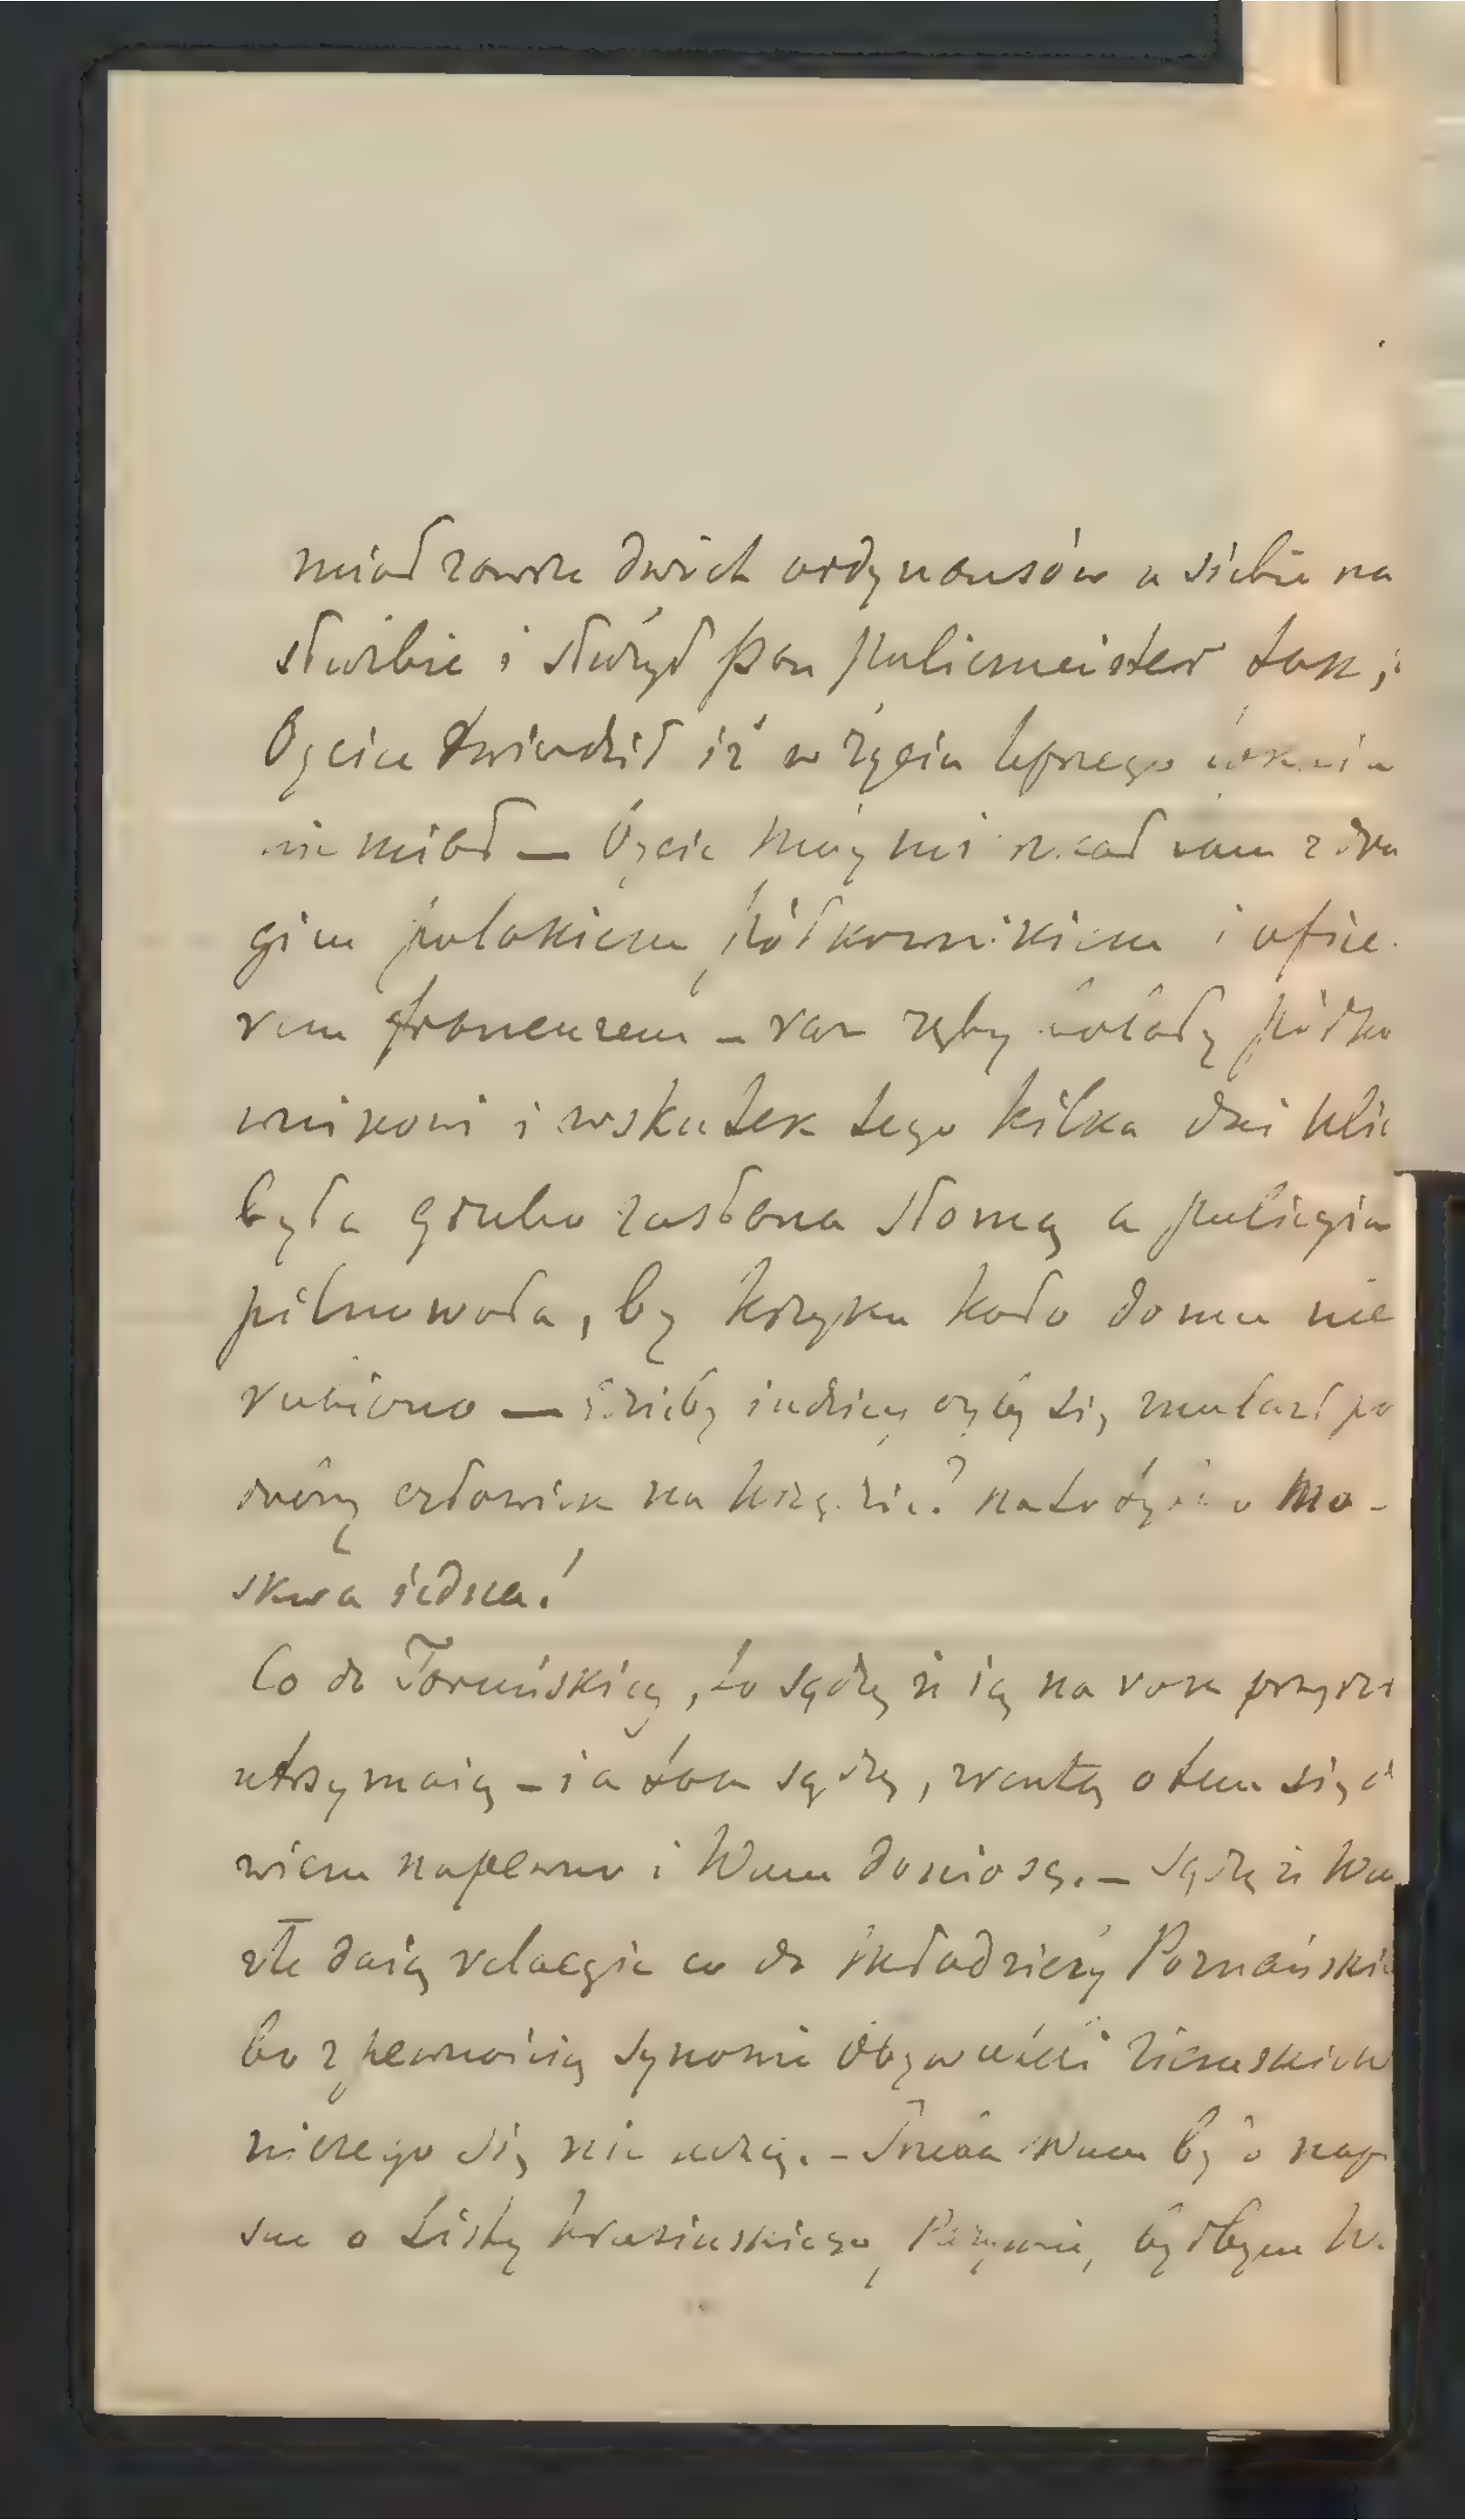 miał zawsze dwóch ordynansów u siebie na
służbie i służył pan policmeister tak, i
Oycice twierdził iż w życiu lepszego
nie miał — Oycie móy mi
gim polakiem półkownikiem i ofice
rem francuzem — raz zęby półko
wnikowi i wskutek tego kilka dni
była grubo zasłana słomą a policyia
pilnowała, by krzyku koło domu nie
robiono — indziey by się znalazł po
człowiek na Mo-
skwa iedna!
Co do Toruńskiey, to sądzę iż ią na rok przysz
utrzymaią — ia tak sądzę, zresztą o tem się d
wiem napewno i Wam doniosę. — Sądzę iż Wa
źle daią relacyie co do młodzieży Poznański
bo z pewnością synowie Obywateli ziemskich
niczego się nie uczą. — Wam by o nap
sac o Listy Krasinskiego, byłbym W.